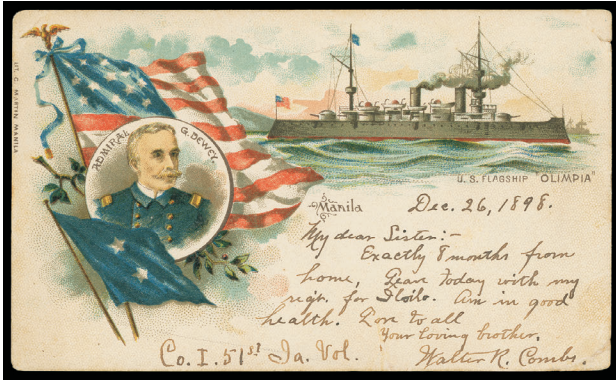 LIT. C. MONTES MANILA
ADMIRAL G. DEWEY.
U.S. FLAGSHIP "OLIMPIA"
Manila Dec. 26, 1898.
My dear Sister:-
Exactly 8 months from
home, Leave today with my
regt. for Iloilo. Am in good
health. Love to all
Your loving brother,
Co. I. 51st Ia. Vol. Walter R. Combs.